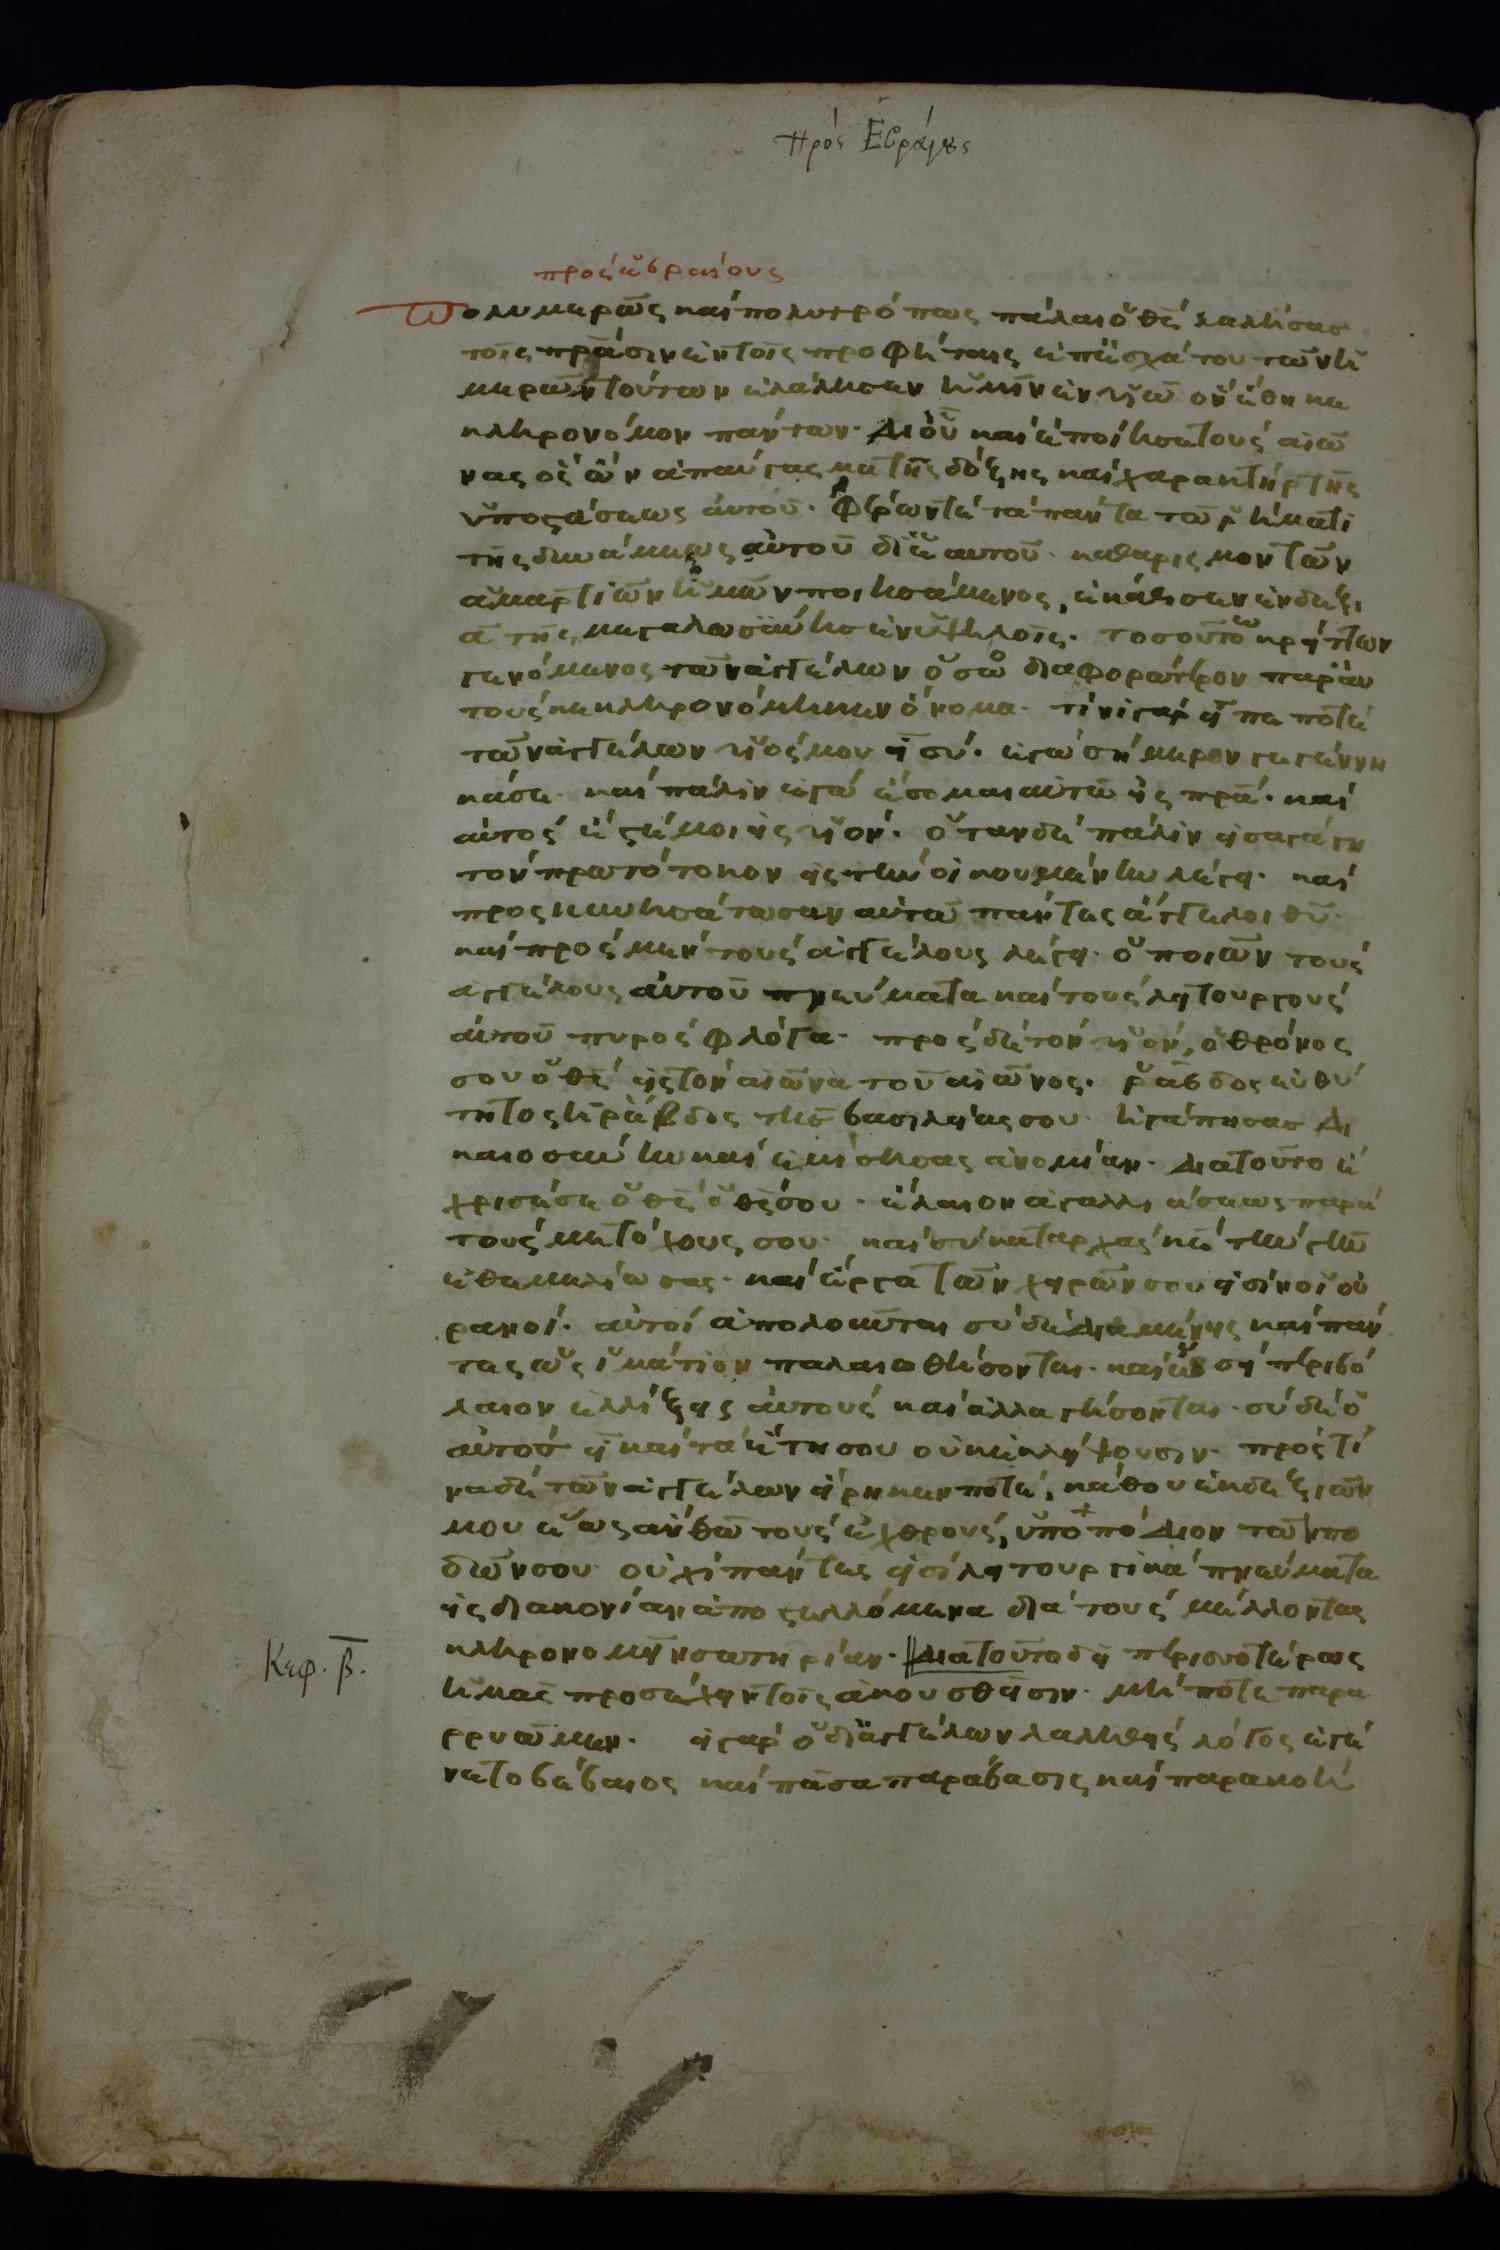 πρὸς Ἑβραίȣς
πρὸς ἑβραίους
Πολυμερῶς καὶ πολυτρόπως πάλαι ὁ θς λαλήσας
τοῖς πρᾶσιν ἐν τοῖς προφήταις ἐπ' ἐσχάτου τῶν ἡ
μερῶν τούτων ἐλάλησεν ἡμῖν ἐν υἱῶ ὃν ἔθηκε
κληρονόμον πάντων· δι' οὗ καὶ ἐποίησε τοὺς αἰῶ
νας ὃς ὢν ἀπαύγασμα τῆς δόξης καὶ χαρακτὴρ τῆς
ὑποστάσεως αὐτοῦ· φέρων τὲ τὰ πάντα τῶ ῥήματι
τῆς δυνάμεως αὐτοῦ δι' ἑαυτοῦ· καθαρισμὸν τῶν
ἁμαρτιῶν ἡμῶν ποιησάμενος, ἐκάθισεν ἐν δεξι
ᾶ τῆς μεγαλωσύνης ἐν ὑψηλοῖς· τοσούτω κρείττων
γενόμενος τῶν ἀγγέλων ὅσω διαφορώτερον παρ' αὐ
τοὺς κεκληρονόμηκεν ὄνομα· τίνι γὰρ εἶπέ ποτε
τῶν ἀγγέλων υἱός μου εἶ σύ· ἐγὼ σήμερον γεγέννη
κά σε· καὶ πάλιν ἐγὼ ἔσομαι αὐτῶ εἰς πρα· καὶ
αὐτὸς ἔσται μοι εἰς υἱόν· ὅταν δὲ πάλιν εἰσαγάγη
τὸν πρωτότοκον εἰς τὴν οἰκουμένην λέγει· καὶ
προσκυνησάτωσαν αὐτῶ πάντες ἄγγελοι θυ·
καὶ πρὸς μὲν τοὺς ἀγγέλους λέγει· ὁ ποιῶν τοὺς
ἀγγέλους αὐτοῦ πνεύματα καὶ τοὺς λειτουργοὺς
αὐτοῦ πυρὸς φλόγα· πρὸς δὲ τὸν υἱὸν, ὁ θρόνος
σου ὁ θς εἰς τὸν αἰῶνα τοῦ αἰῶνος· ῥάβδος εὐθύ
τητος ἡ ῥάβδος τῆς βασιλείας σου· ἠγάπησας δι
καιοσύνην καὶ ἐμίσησας ἀνομίαν· διὰ τοῦτο ἔ
χρισέ σε ὁ θς ὁ θς σου· ἔλαιον ἀγαλλιάσεως παρὰ
τοὺς μετόχους σου· καὶ σὺ κατ' ἀρχὰς κε τὴν γῆν
ἐθεμελίωσας· καὶ ἔργα τῶν χειρῶν σου εἰσὶν οἱ οὐ
ρανοί· αὐτοὶ ἀπολοῦνται σὺ δὲ διαμένεις καὶ πάν
τες ὡς ἱμάτιον παλαιωθήσονται· καὶ ὡσεὶ περιβό
λαιον ἑλίξεις αὐτοὺς καὶ ἀλλαγήσονται· σὺ δὲ ὁ
αὐτὸς εἶ καὶ τὰ ἔτη σου οὐκ ἐκλείψουσιν· πρὸς τί
να δὲ τῶν ἀγγέλων εἴρηκεν ποτέ, κάθου ἐκ δεξιῶν
μου ἕως ἂν θῶ τοὺς ἐχθρούς, ὑποπόδιον τῶν πο
δῶν σου· οὐχὶ πάντες εἰσὶ λειτουργικὰ πνεύματα
εἰς διακονίαν ἀποστελλόμενα διὰ τοὺς μέλλοντας
κληρονομεῖν σωτηρίαν· διὰ τοῦτο δεῖ περισσοτέρως
Κεφ. β.
ἡμᾶς προσέχειν τοῖς ἀκουσθεῖσιν· μήποτε παρα
ρρυῶμεν· εἰ γὰρ ὁ δι' ἀγγέλων λαληθεὶς λόγος ἐγέ
νετο βέβαιος καὶ πᾶσα παράβασις καὶ παρακοὴ